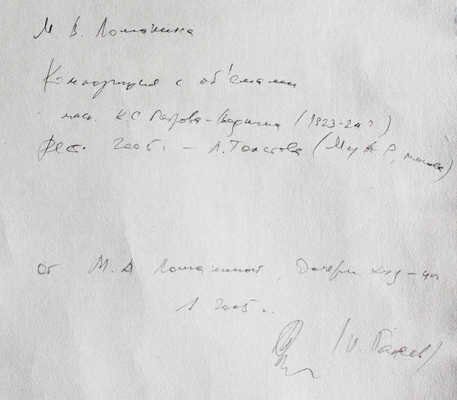 М В. Ломакина
Композиция с об'ёмами
маст. КС Петрова-Водкина (1923-24?)
Рест. 2005г. - А. Толстова (МузАР, Москва)
От М. А Ломакиной, Дочери худ-цы
1 2005 г.
(И. Галеев)